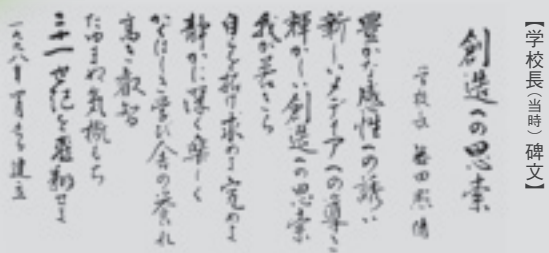 【学校長(当時)碑文】
創造への思索
学校長
豊かな感性への誘い
新しいメディアへの導き
輝かしい創造への思索
我が若きら
自らを拓け求めよ究めよ
静かに深く楽しく
学び舎の誉れ
高き叡智
たゆまぬ気概もち
二十一世紀を飛翔せよ
一九九八年 建立